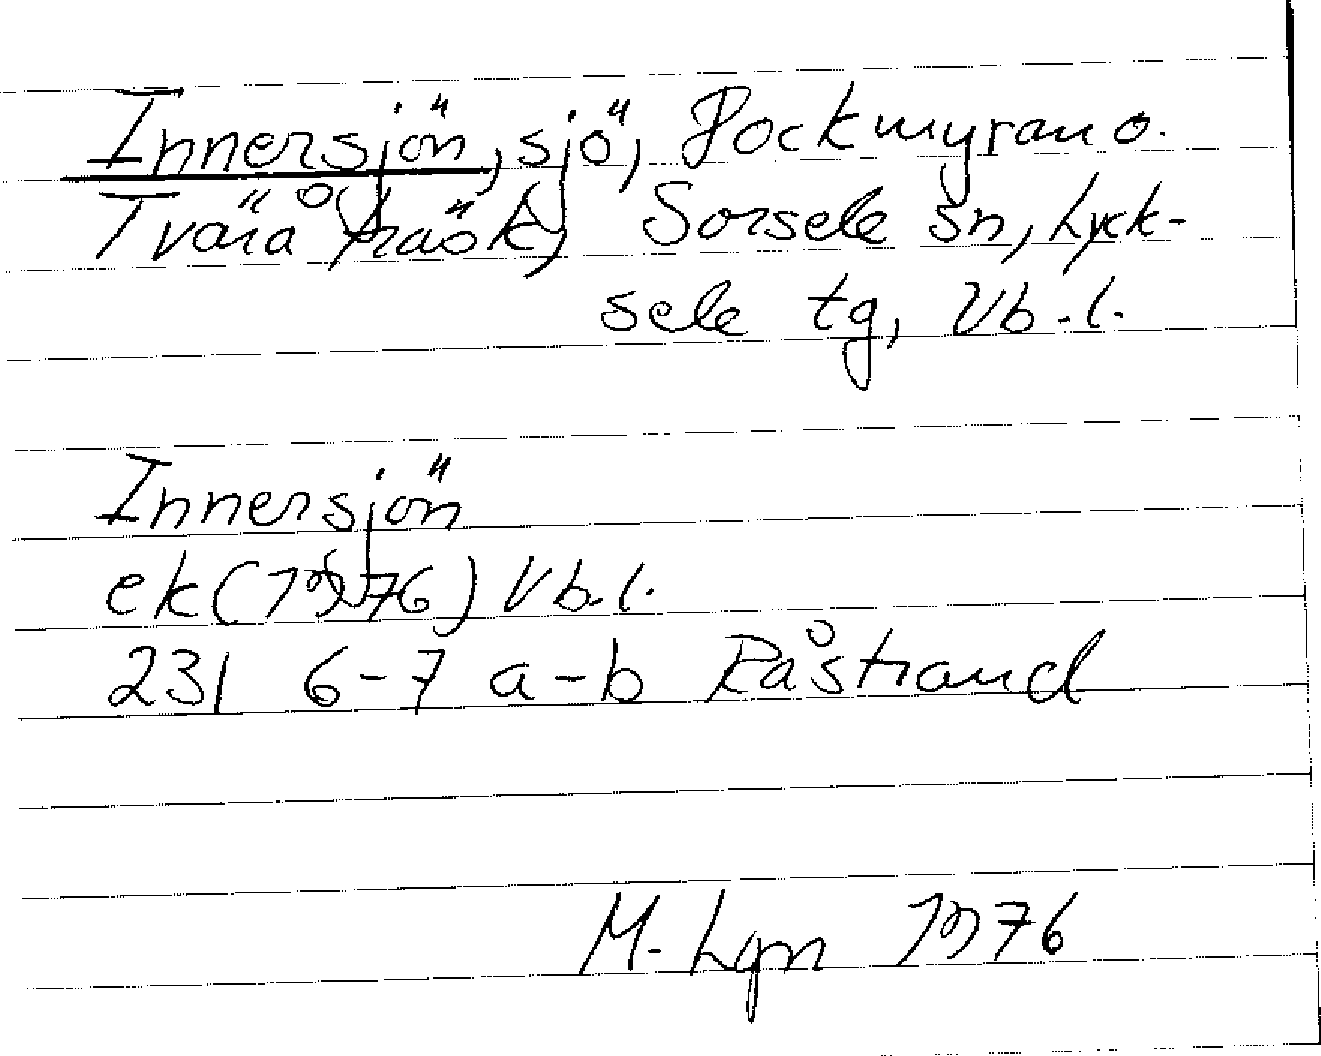 Innersjön, sjö, Pockmyran o.
Tväråträsk, Sorsele sn, Lyck-
sele tg, Vb.l.
Innersjön
ek (1976) Vb.l.
231 6-7 a-b Råstrand
M. Lgn 1976